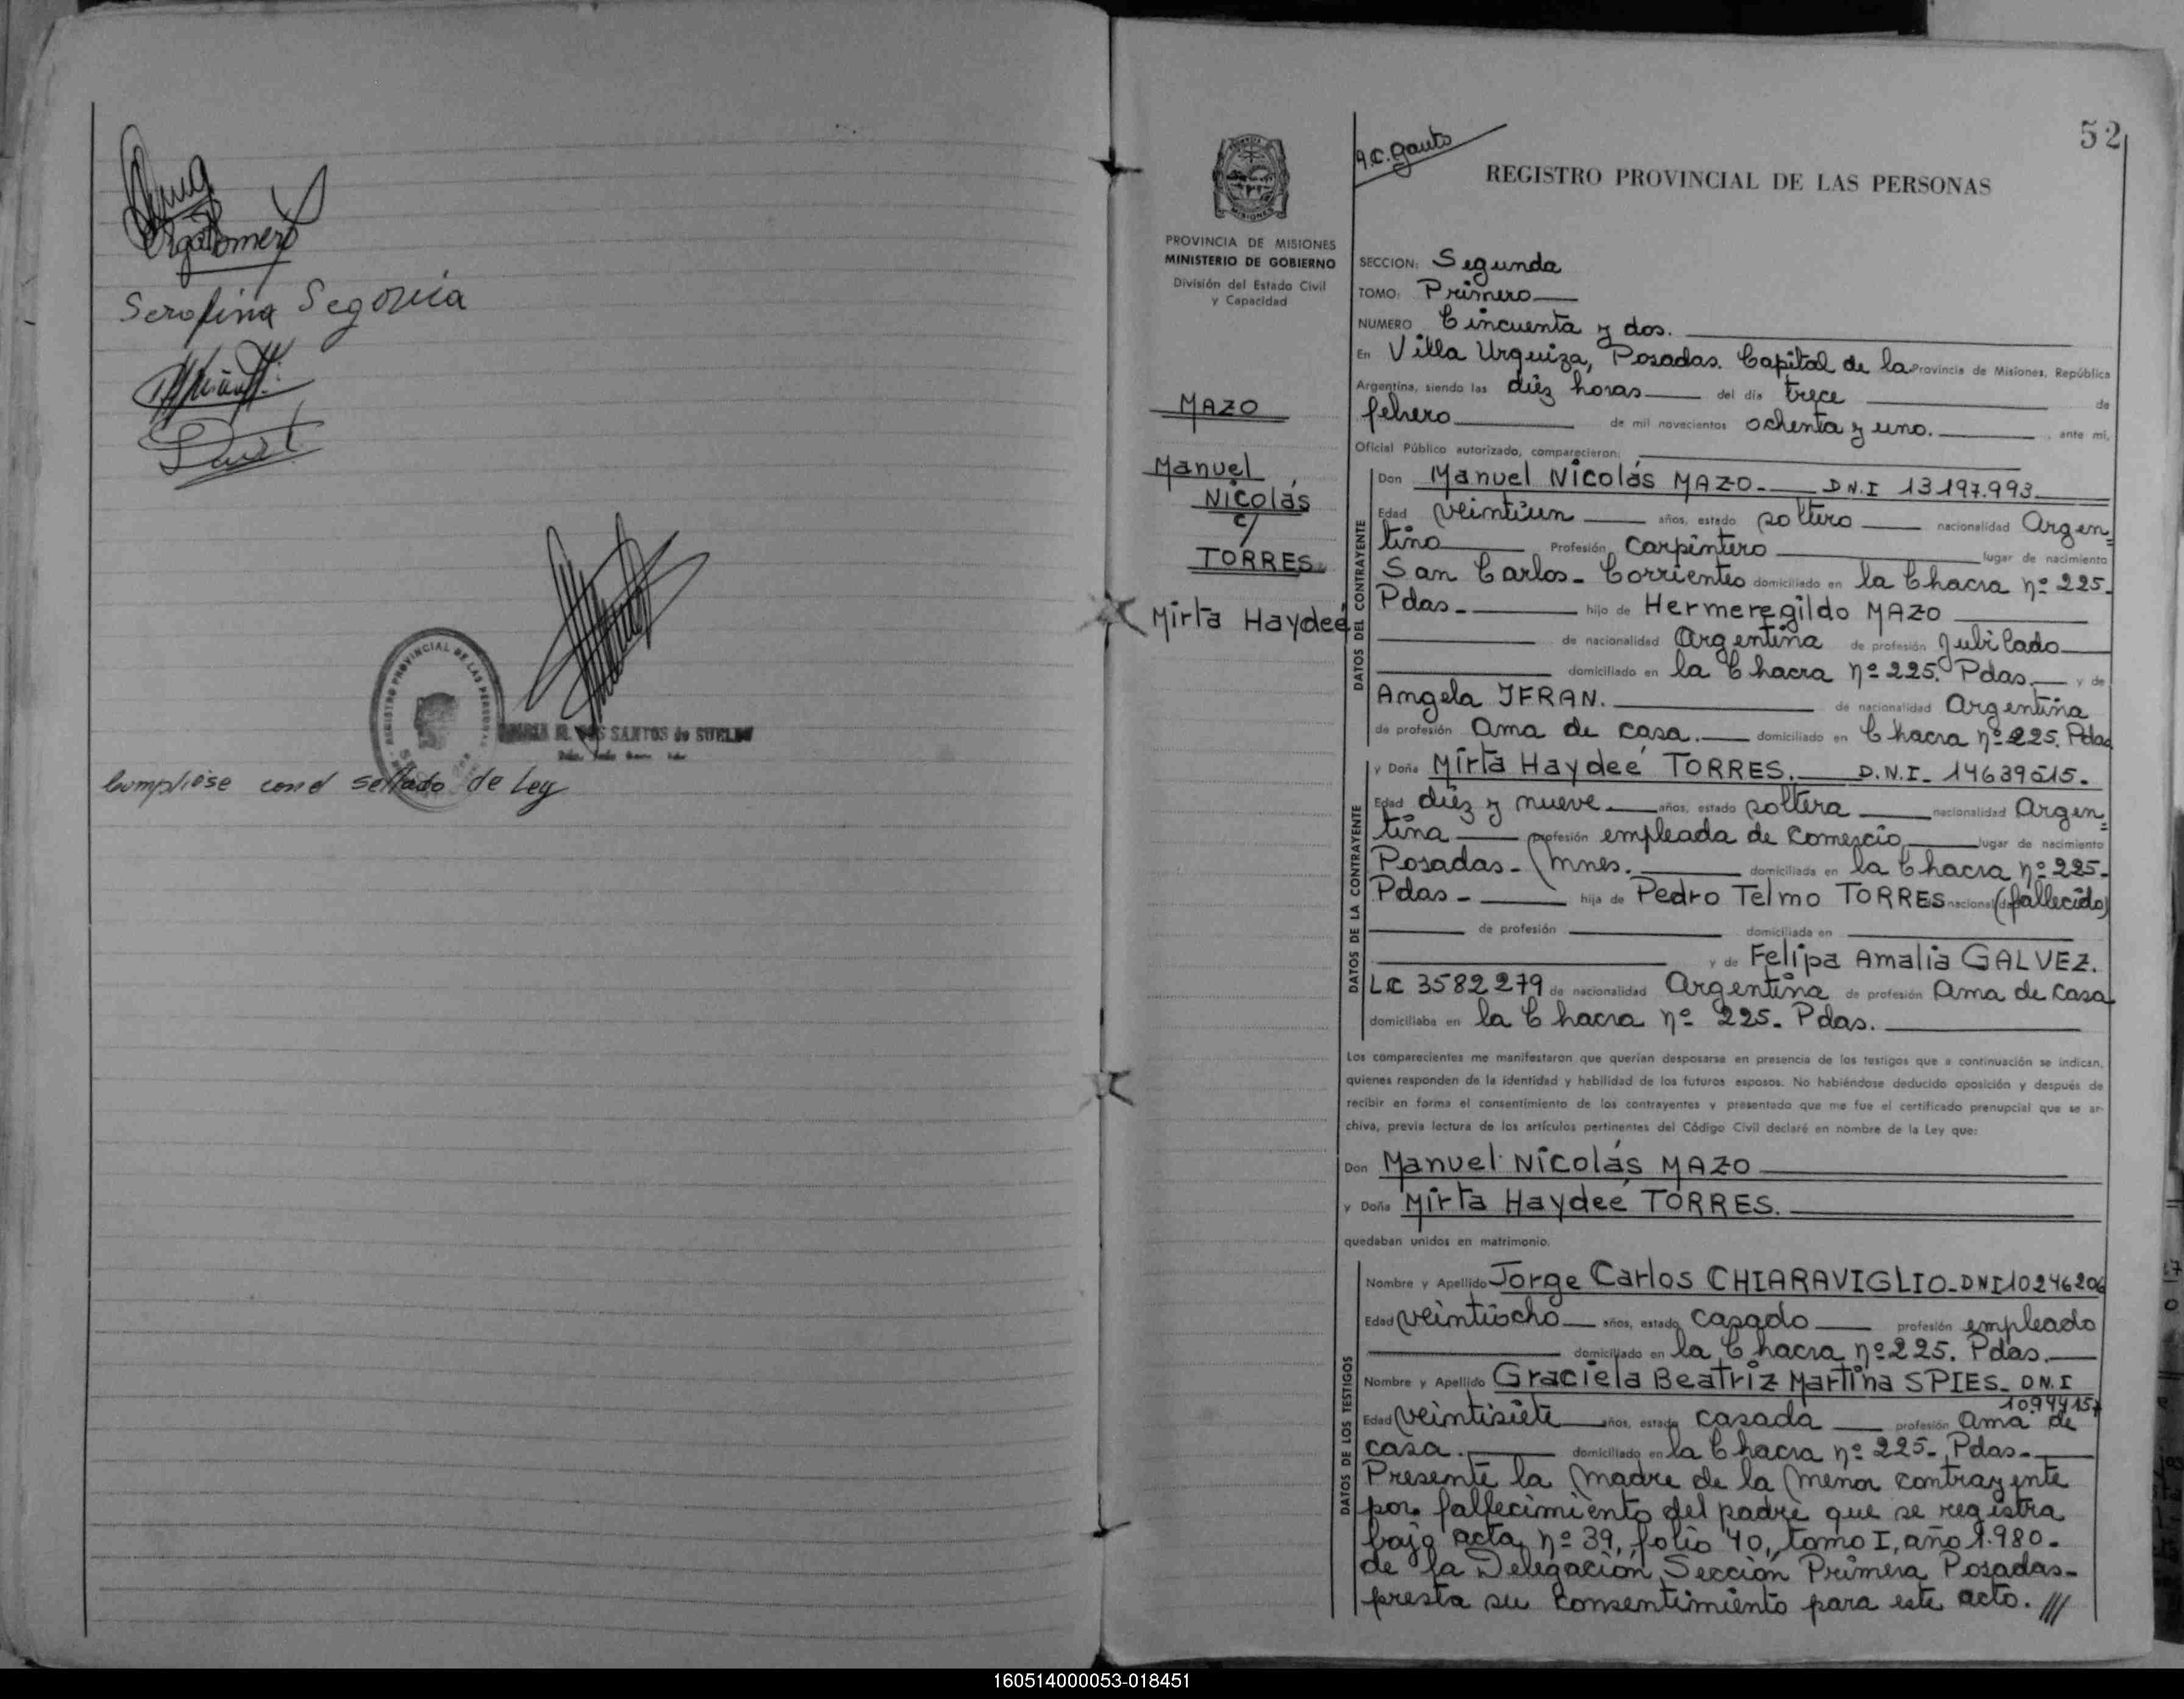 Serafina Segovia
REGISTRO PROVINCIAL DE LAS PERSONAS
SANTOS de SUELDO
Cumpliose con el sellado de Ley
52
A.C. Gauto
REGISTRO PROVINCIAL DE LAS PERSONAS
MISIONES
PROVINCIA DE MISIONES
MINISTERIO DE GOBIERNO
División del Estado Civil
y Capacidad
MAZO
Manuel
Nicolás
c/
TORRES
Mirta Haydeé
SECCION: Segunda
TOMO: Primero
NUMERO Cincuenta y dos.
En Villa Urquiza, Posadas. Capital de la Provincia de Misiones, República
Argentina, siendo las diez horas del día trece de
febrero de mil novecientos ochenta y uno. , ante mí,
Oficial Público autorizado, comparecieron:
DATOS DEL CONTRAYENTE
Don Manuel Nicolás MAZO. D.N.I 13197.993
Edad veintiun años, estado soltero nacionalidad Argen=
tino Profesión Carpintero lugar de nacimiento
San Carlos - Corrientes domiciliado en la Chacra nº 225.
Pdas. hijo de Hermeregildo MAZO
de nacionalidad Argentina de profesión Jubilado
domiciliado en la Chacra nº 225. Pdas. y de
Angela IFRAN. de nacionalidad Argentina
de profesión Ama de casa. domiciliado en Chacra nº 225. Pdas
DATOS DE LA CONTRAYENTE
y Doña Mirta Haydeé TORRES. D.N.I. 14639515.
Edad diez y nueve años, estado soltera nacionalidad Argen=
tina profesión empleada de Comercio lugar de nacimiento
Posadas - Mnes. domiciliada en la Chacra nº 225-
Pdas - hija de Pedro Telmo TORRES nacionalidad (fallecido)
de profesión domiciliada en
y de Felipa Amalia GALVEZ.
LC 3582279 de nacionalidad Argentina de profesión Ama de casa
domiciliaba en la Chacra nº 225. Pdas.
Los comparecientes me manifestaron que querían desposarse en presencia de los testigos que a continuación se indican,
quienes responden de la identidad y habilidad de los futuros esposos. No habiéndose deducido oposición y después de
recibir en forma el consentimiento de los contrayentes y presentado que me fue el certificado prenupcial que se ar-
chiva, previa lectura de los artículos pertinentes del Código Civil declaré en nombre de la Ley que:
Don Manuel Nicolás MAZO
y Doña Mirta Haydeé TORRES.
quedaban unidos en matrimonio.
DATOS DE LOS TESTIGOS
Nombre y Apellido Jorge Carlos CHIARAVIGLIO- DNI 10246206
Edad veintiocho años, estado casado profesión empleado
domiciliado en la Chacra nº 225. Pdas.
Nombre y Apellido Graciela Beatriz Martina SPIES- D.N.I
10944157
Edad veintisiete años, estado casada profesión ama de
casa. domiciliado en la Chacra nº 225- Pdas-
Presente la madre de la menor contrayente
por fallecimiento del padre que se registra
bajo acta nº 39, folio 40, tomo I, año 1.980.
de la Delegación Sección Primera Posadas-
presta su consentimiento para este acto. ///
160514000053-018451